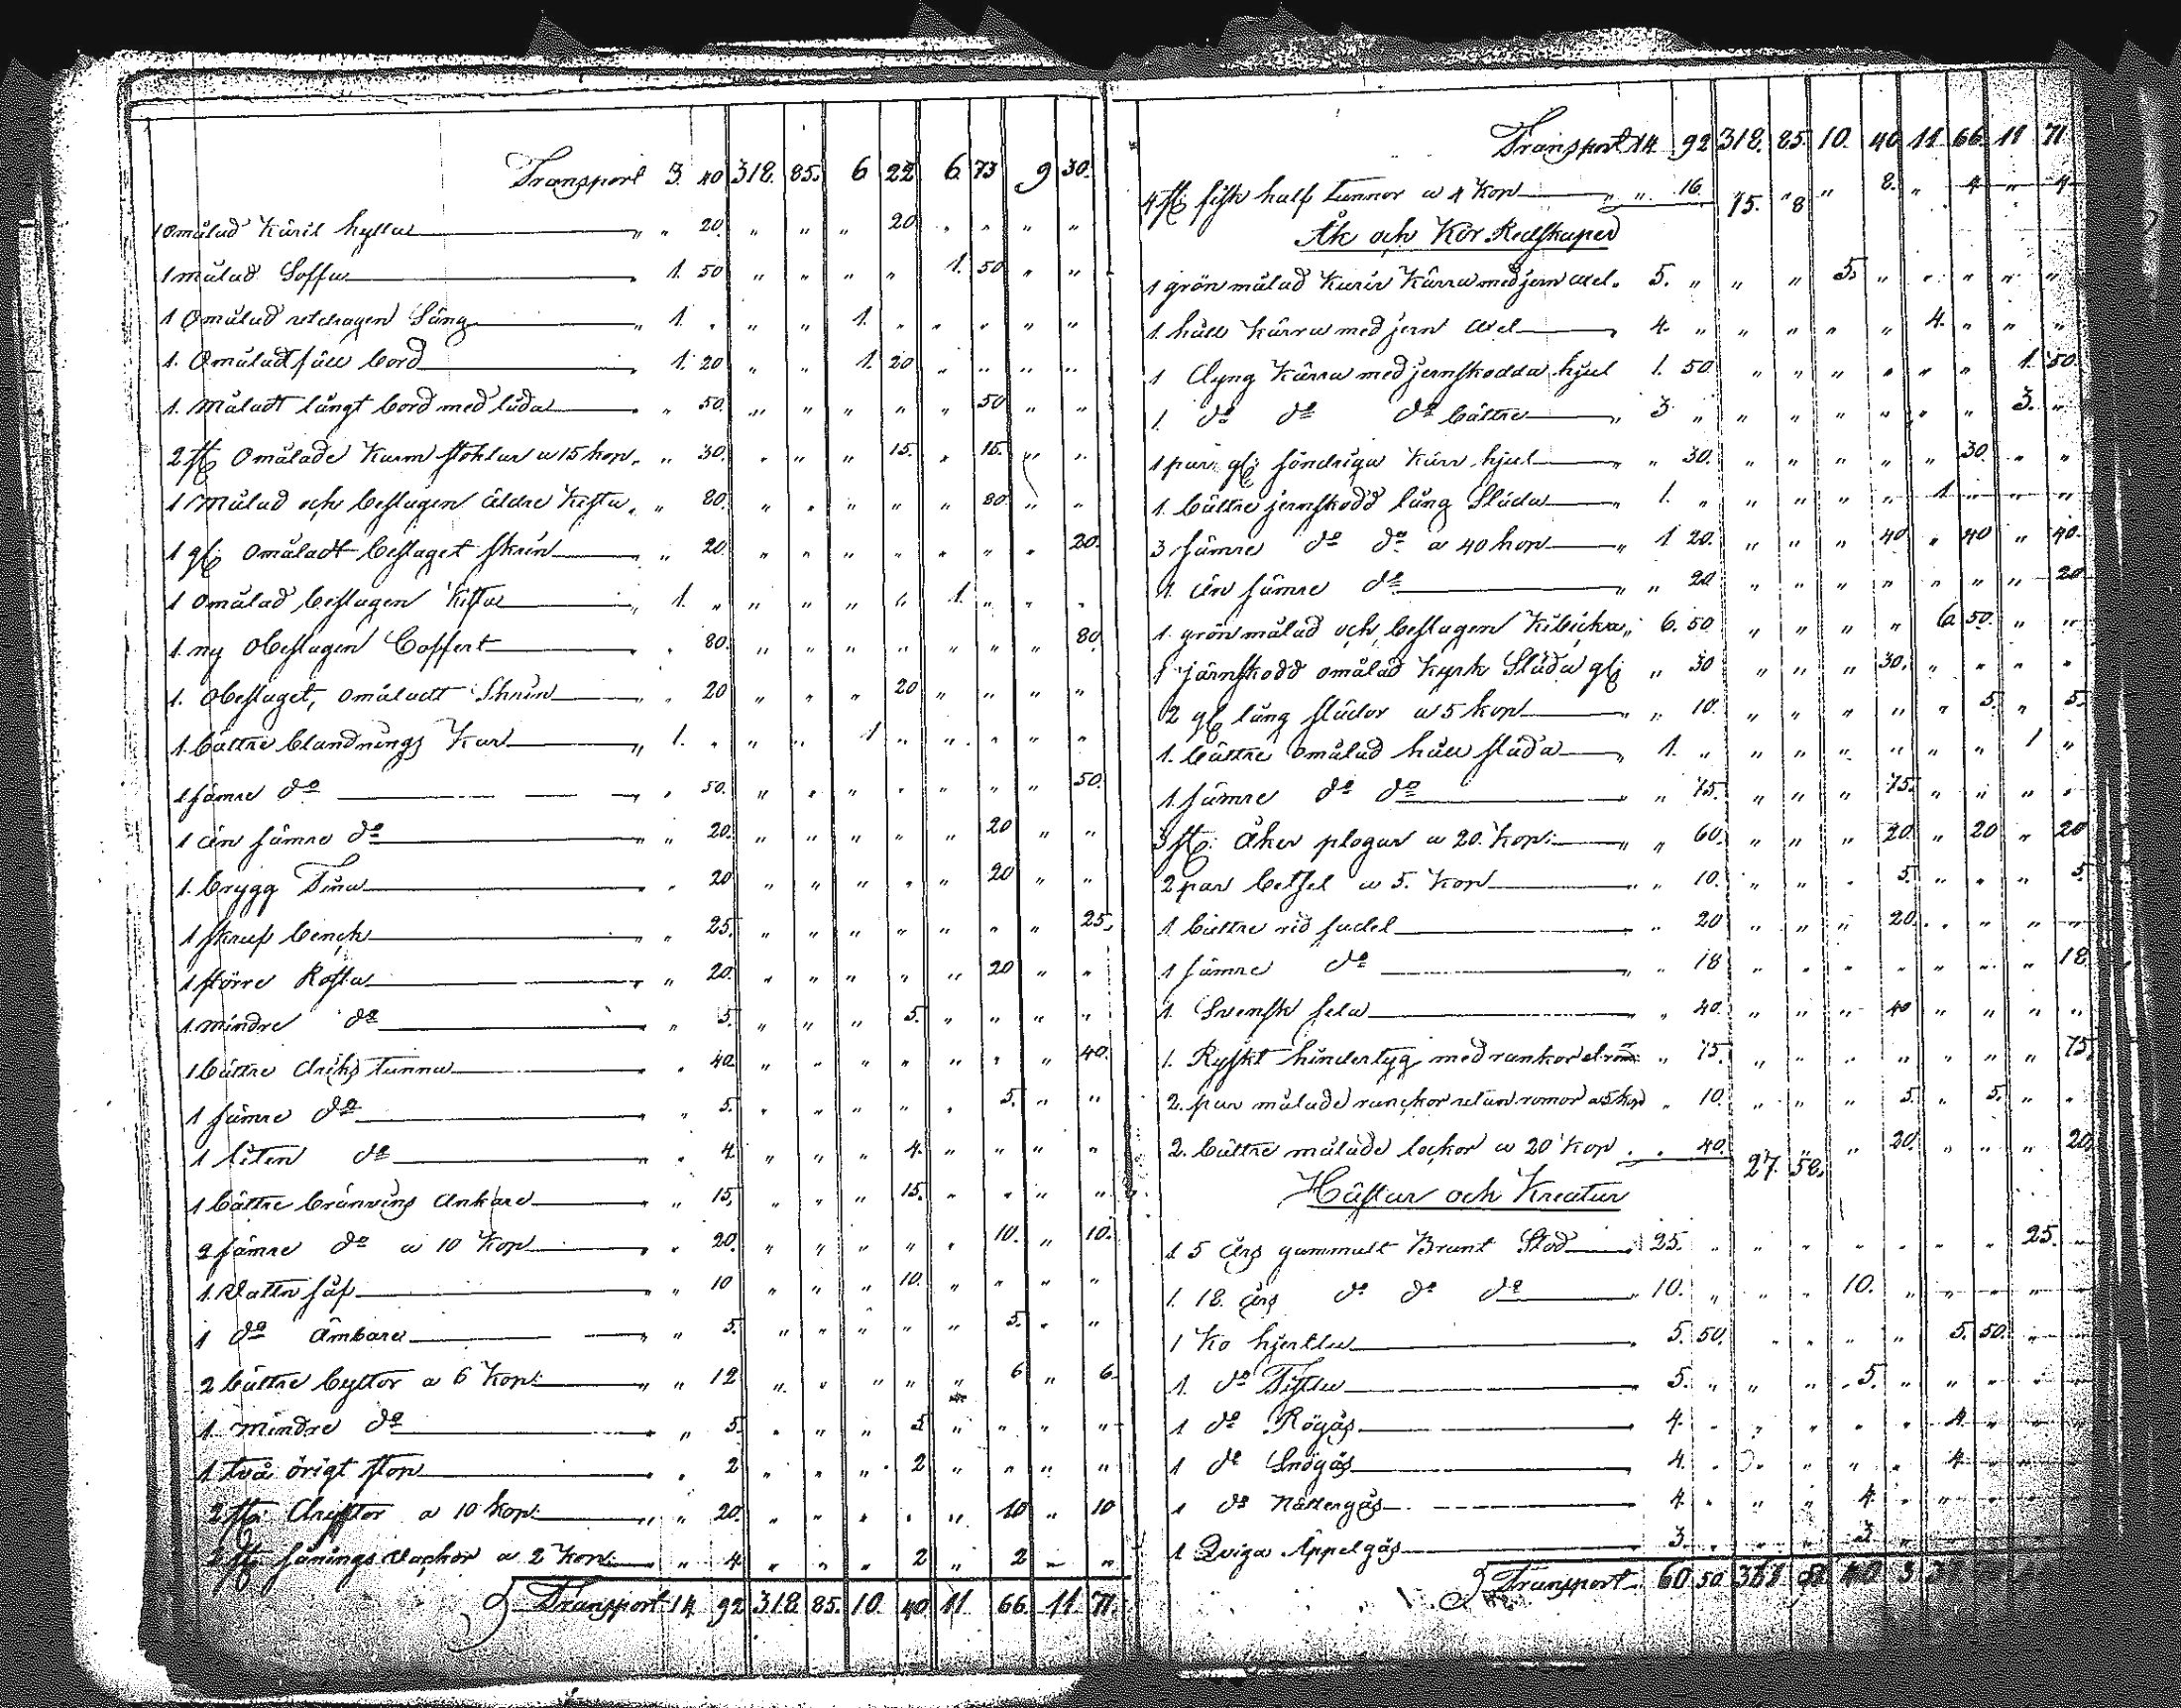 Transport 3. 40 318. 85. 6 22 6. 73 9 30.
1 Omålad Käril hylla " " 20. " " " 20 " " " "
1 målad Soffa " 1. 50 " " " " 1. 50 " "
1 Omålad utdragen Säng " 1. " " " 1. " " " " "
1. Omåladt fäll bord " 1. 20 " " 1. 20 " " " "
1. Måladt långt bord med låda " " 50. " " " " " 50 " "
2 st Omålade Karm stohlar a 15 kop. " " 30. " " " 15. " 15. " "
1 Målad och beslagen äldre Kista " " 80. " " " " " 80. " "
1 gl: omåladt beslaget skrin " " 20. " " " " " " " 20.
1 omålad beslagen Kista " 1. " " " " " 1. " " "
1. ny obeslagen Coffert " " 80. " " " " " " " 80.
1. obeslaget, omåladt Skrin " " 20 " " " 20 " " " "
1. bättre blandnings Kar " 1. " " " 1 " " " " "
1 sämre do " " 50. " " " " " " " 50.
1 än sämre do " " 20. " " " " " 20 " "
1. brygg Tina " " 20 " " " " " 20 " "
1 skruf bench " " 25. " " " " " " " 25.
1 större Rosta " " 20. " " " " " 20 " "
1. mindre do " " 5. " " " 5. " " " "
1 bättre dricks tunna " " 40. " " " " " " " 40.
1 sämre do " " 5. " " " " " 5. " "
1 liten do " " 4. " " " 4. " " " "
1 bättre bränvins Ankare " " 15. " " " 15. " " " "
2 sämre do a 10 Kop " " 20. " " " " " 10. " 10.
1. Vatten såf " " 10 " " " 10. " " " "
1 do Ämbare " " 5. " " " " " 5. " "
2 bättre byttor a 6 Kop: " " 12 " " " " " 6 " 6.
1. mindre do " " 5. " " " 5 " " " "
1 två örigt stop " " 2 " " " 2 " " " "
2 st: driftor a 10 kop: " " 20. " " " " " 10 " 10
2 st: sånings vackor a 2 Kop: " " 4 " " " 2 " 2 " "
Transport 14 92 318. 85. 10. 40 11 66. 11. 71.
Transport 14. 92 318. 85. 10. 40 11 66. 11 71
4 st: fisk half tunnor a 4 Kop " ". 16. 15. "8 " 8. " 4 " 4
Åk och Kör Redskaper
1 grön målad Kurir Kärra med jern axel " 5. " " " 5. " " " " "
1. häll Kärra med jern axel " 4. " " " " " 4. " " "
1 dyng Kärra med jernskodda hjul 1. 50 " " " " " " 1. 50.
1. do do do bättre " 3 " " " " " " " 3. "
1 par gl: söndriga Kärr hjul " " 30. " " " " " 30. " "
1. bättre jernskodd lång Släda " 1. " " " " " 1 " " "
3 sämre do do a 40 kop " 1 20. " " " 40 " 40 " 40.
1. än sämre do " " 20 " " " " " " " 20
1. grön målad och beslagen Kibicka " 6. 50 " " " " 6. 50. " "
1 järnskodd omålad Kyrk Släda gl: " 30 " " " 30. " " " "
2 gl: lång slädor a 5 kop " " 10. " " " " " 5. " 5.
1. bättre omålad häll släda " 1. " " " " " " " 1 "
1. sämre do do " " 75. " " " 75. " " " "
3 st: Åker plogar a 20. Kop: " " 60. " " " 20. " 20 " 20
2 par betsel a 5. Kop " " 10. " " " 5. " " " 5.
1. bättre rid sadel " " 20 " " " 20. " " " "
1 sämre do " " 18 " " " " " " " 18.
1. Svensk sela " " 40. " " " 40 " " " "
1. Ryskt hindertyg med rankor " 75. " " " " " " " 75.
2. par målade ranckor utan romor a 5 kop " 10. " " " 5. " 5. " "
2. bättre målade lockor a 20 Kop " " 40. 27. 58. " 20. " " " 20.
Hästar och Kreatur
1 5 års gammalt Brunt Stod " 25. " " " " " " " 25. "
1. 18. års do do do " 10. " " " 10. " " " " "
1 Ko hjertlu " 5. 50. " " " " 5. 50. " "
1. do Tistlu 5. " " " 5. " " " " "
1 do Rögås 4. " " " " " 4. " " "
1 do Snögås 4. " " " " " 4. " " "
1 do Nättergås 4. " " " 4. " " " " "
1 Qviga Äppelgås 3. " " " 3. " "
Transport 60 50 361